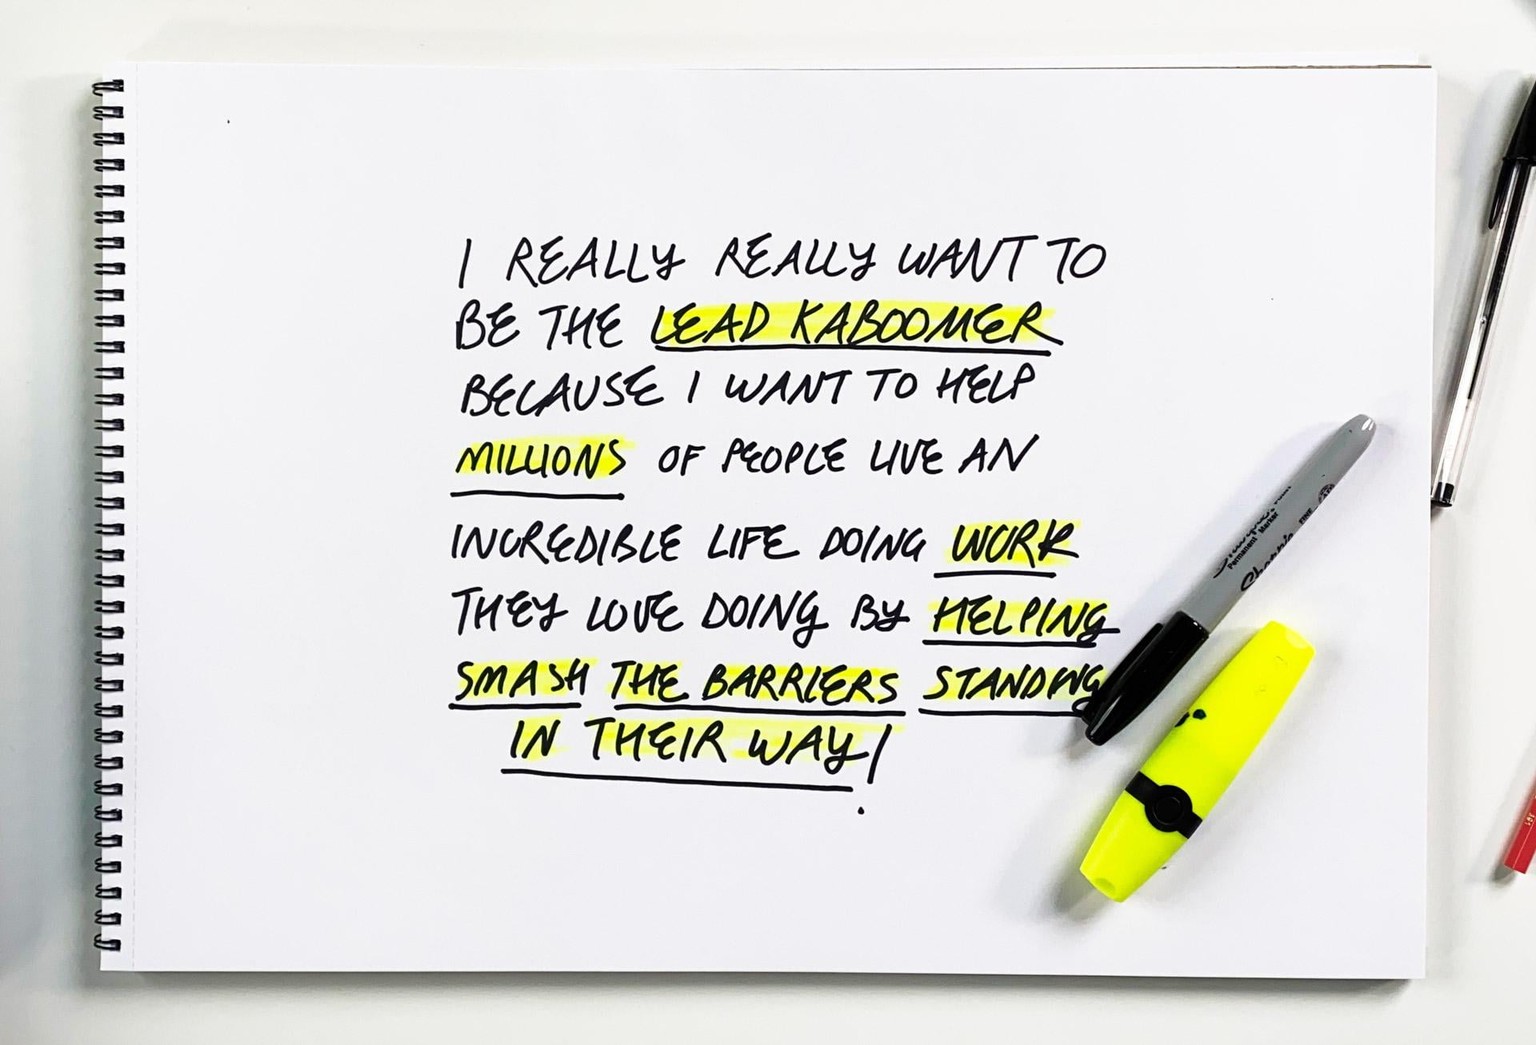 I REALLY REALLY WANT TO
BE THE LEAD KABOOMER
BECAUSE I WANT TO HELP
MILLIONS OF PEOPLE LIVE AN
INCREDIBLE LIFE DOING WORK
THEY LOVE DOING BY HELPING
SMASH THE BARRIERS STANDING
IN THEIR WAY!
Permanent Marker
FINE
Sharpie